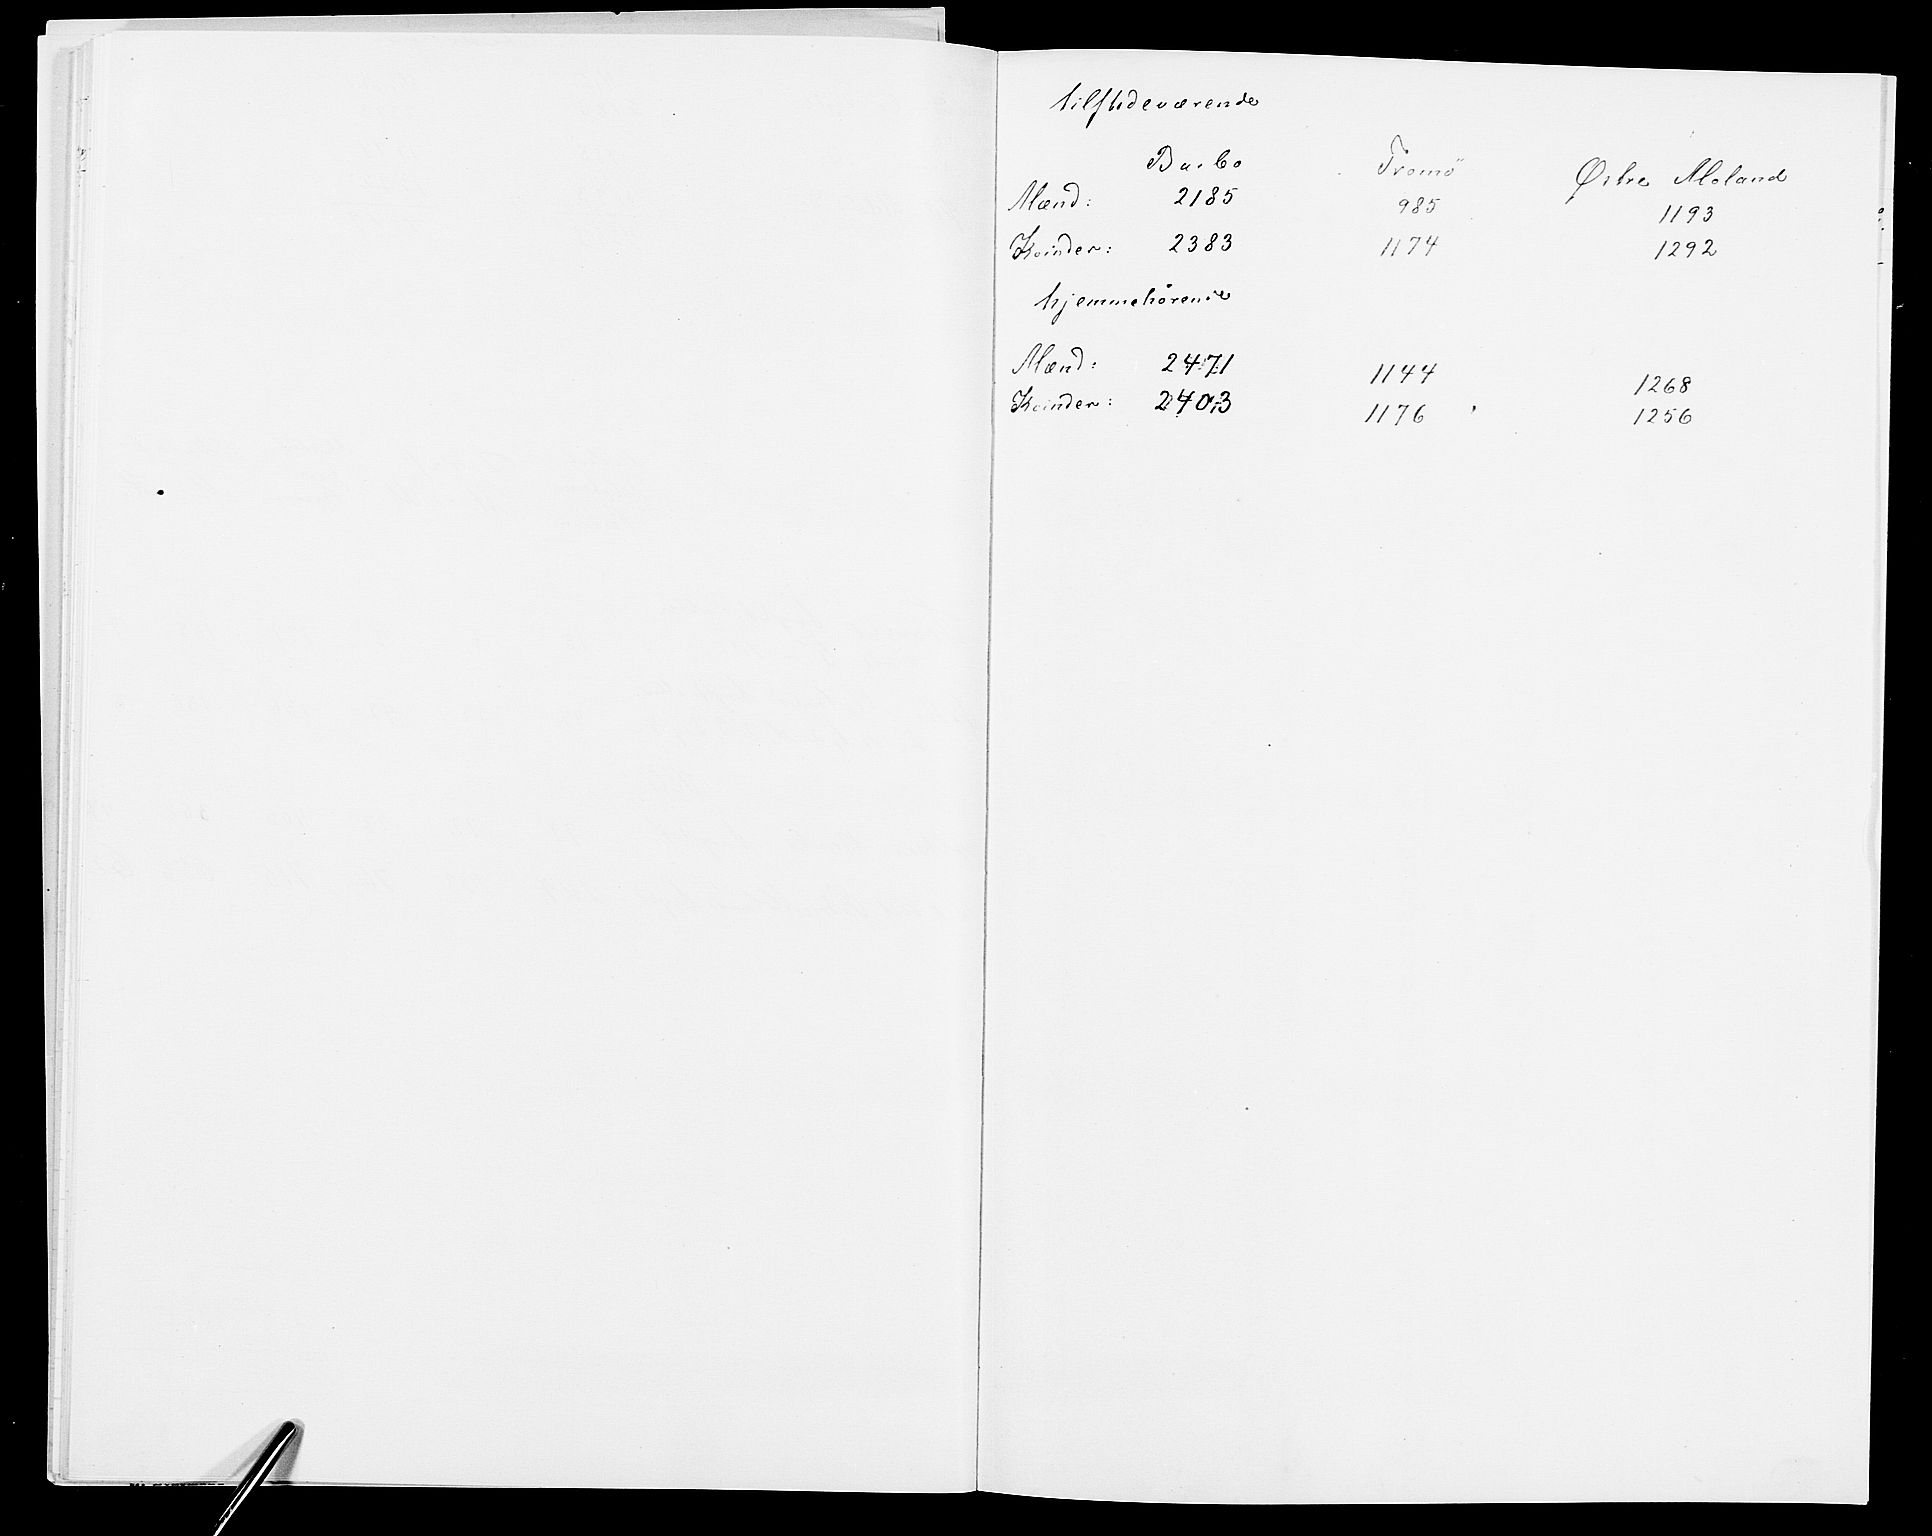 tilstedeværende
Barbo Tromö Østre Moland
Mænd: 2185 985 1193
Kvinder: 2383 1174 1292
hjemmehörende
Mænd: 2471 1144 1268
Kvinder: 2403 1176 1256